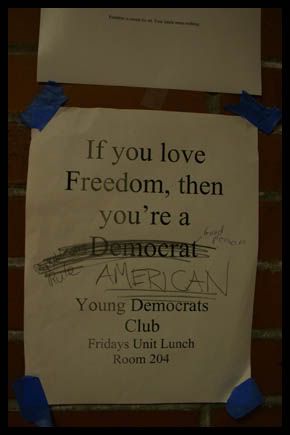 If you love
Freedom, then
you're a
Democrat
good person
Rule
AMERICAN
Young Democrats
Club
Fridays Unit Lunch
Room 204